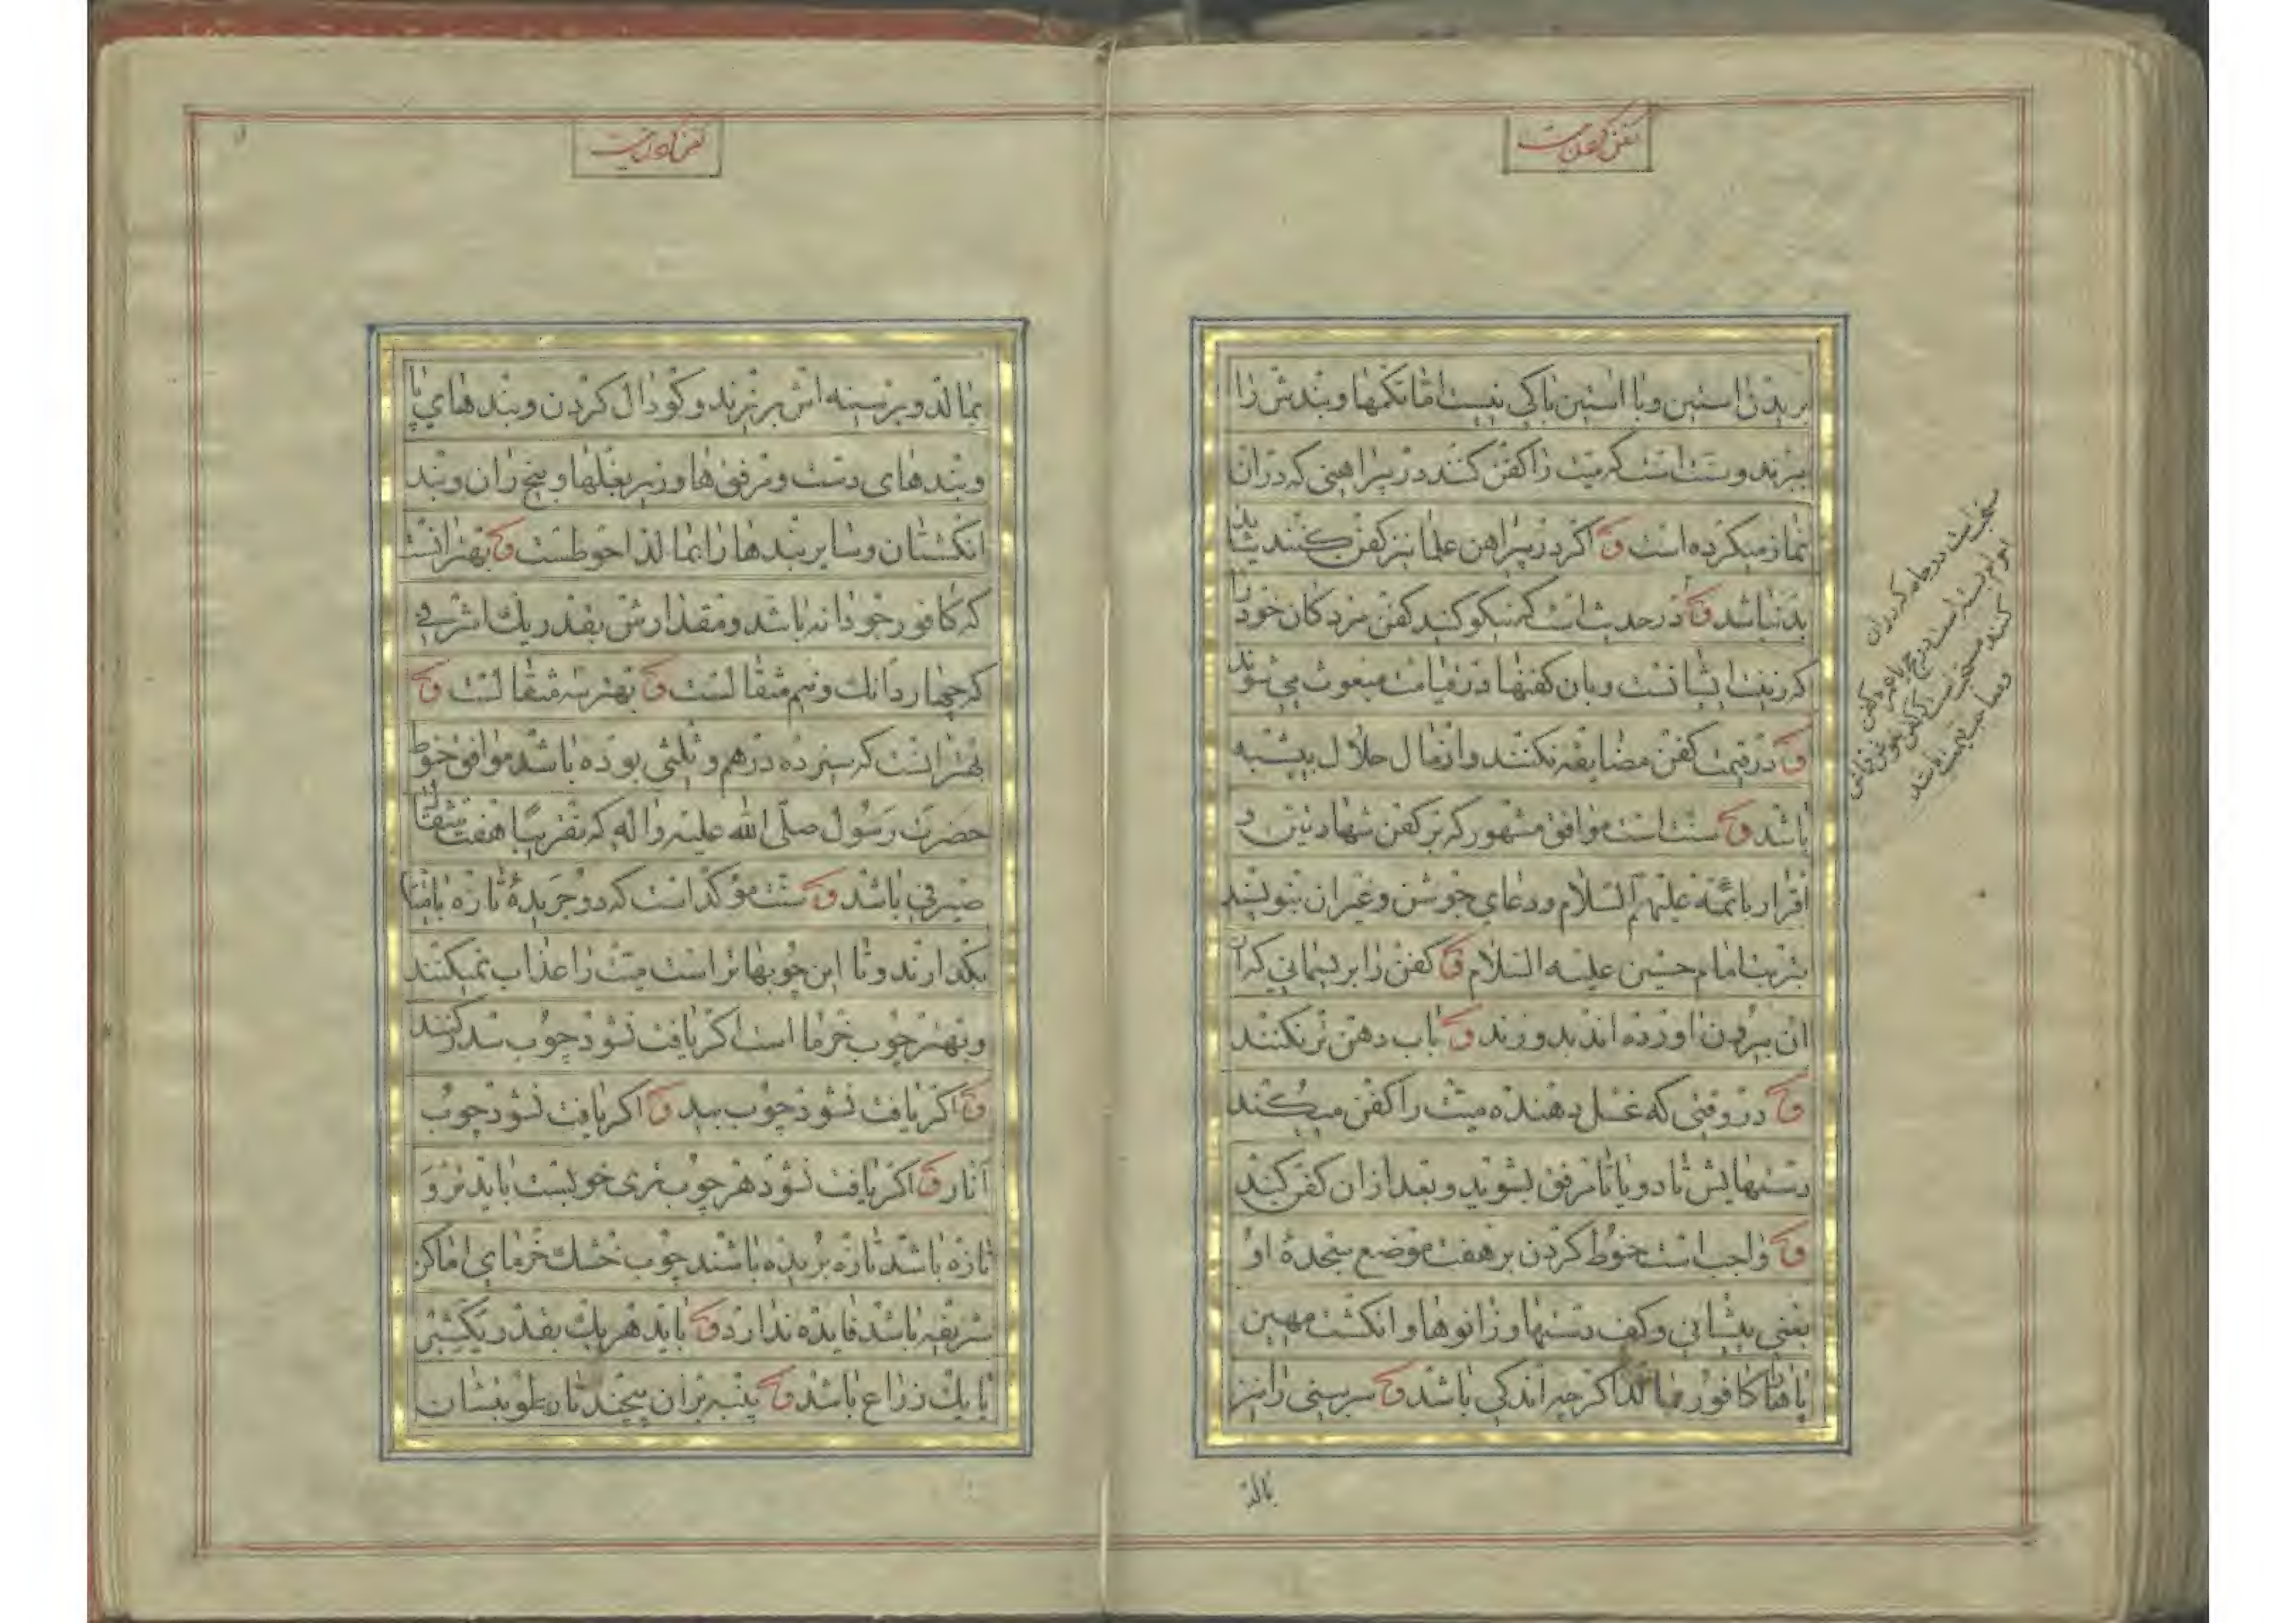 کفن کردن میت
بریدن استین و با استین باکی نیست اما تکمها و بندش را
ببرند و سنت است که میت را کفن کنند در پیراهنی که در ان
نماز میکرده است و اکر در پیراهن علما نیز کفن کنند شاید
بد نباشد و در حدیث است که نیکو کنید کفن مردکان خود را
که زینت ایشانست و بان کفنها در قیامت مبعوث می شوند
و در قیمت کفن مضایقه نکنند و از مال حلال بیشبه
باشد و سنت است موافق مشهور که بر کفن شهادتین و
اقرار بائمه علیهم السلام و دعای جوشن و غیر ان بنویسند
بتربت امام حسین علیه السلام و کفن را بریسمانی که از
ان بیرون اورده اند بدوزند و باب دهن تر نکنند
و در وقتی که غسل دهنده میت را کفن میکند
دستهایش تا دو یا تا مرفق بشوید و بعد از ان کفن کند
و واجب است حنوط کردن بر هفت موضع سجده او
یعنی پیشانی و کف دستها و زانوها و انکشت مهین
پاها کافور بمالد اکرچه اندکی باشد و سر بینی را نیز
بمالد
کفن کردن میت
بمالد و بر سینه اش بریزند و کودال کردن و بندهای پا
و بندهای دست و مرفق ها و زیر بغلها و بیخ ران و بند
انکشتان و سایر بندها را بمالد احوطست و بهتر انست
که کافور جودانه باشد و مقدارش بقدر یك اشرفی
که چهار دانك و نیم مثقالست و بهتر سه مثقالست و
بهتر انست که سیزده درهم و ثلثی بوده باشد موافق حنوط
حضرت رسول صلی الله علیه و اله که تقریبا هفت مثقال
صیرفی باشد و سنت مؤکد است که دو جریدهٔ تازه با میت
بکذارند و تا این چوبها تر است میت را عذاب نمیکنند
و بهتر چوب خرما است اکر یافت نشود چوب سدر کنند
و اکر یافت نشود چوب بید و اکر یافت نشود چوب
انار و اکر یافت نشود هر چوب تری خوبست باید تر و
تازه باشد تازه بریده باشند چوب خشك خرمای اماکن
شریفه باشد فایده ندارد و باید هر یك بقدر یکشبر
یا یك ذراع باشد و پنبه بران پیچند تا رطوبتشان